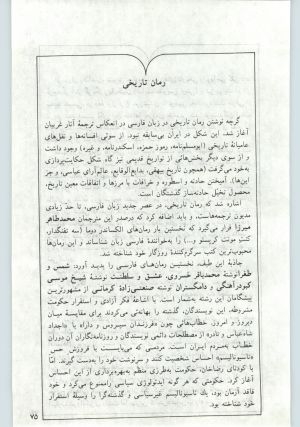 رمان تاریخی
گرچه نوشتن رمان تاریخی در زبان فارسی در انعکاس ترجمهٔ آثار غربیان
آغاز شد. این شکل در ایران بی‌سابقه نبود. از سوئی افسانه‌ها و نقل‌های
عامیانهٔ تاریخی (ابومسلم‌نامه، رموز حمزه، اسکندرنامه، و غیره) وجود داشت
و از سوی دیگر بخش‌هائی از تواریخ قدیمی نیز گاه شکل حکایت‌پردازی
به‌خود می‌گرفت (همچون تاریخ بیهقی، بدایع‌الوقایع، عالم‌آرای عباسی، و جز
این‌ها). آمیختن حادثه و اسطوره و خرافات با مرزها و اتفاقات معین تاریخ،
محصول تخیّل حادثه‌ساز گذشتگان است.
اشاره شد که رمان تاریخی، در عصر جدید زبان فارسی، تا حدّ زیادی
مدیون ترجمه‌هاست، و باید اضافه کرد که درصدر این مترجمان محمدطاهر
میرزا قرار می‌گیرد که نخستین بار رمان‌های الکساندر دوما (سه تفنگدار،
کنت مونت کریستو و...) را به‌خوانندهٔ فارسی زبان شناساند و این رمان‌ها
محبوب‌ترین کتب سرگرم‌کنندهٔ روزگار خود شناخته شد.
جاذبهٔ این طیف، نخستین رمان‌های فارسی را پدید آورد: شمس و
طغرا نوشتهٔ محمدباقر خسروی، عشق و سلطنت نوشتهٔ شیخ موسی
کبودرآهنگی و دامگستران نوشتهٔ صنعتی‌زادهٔ کرمانی از مشهورترین
پیشگامان این رشته به‌شمار است. با اشاعهٔ فکر آزادی و استقرار حکومت
مشروطه، این نویسندگان، گذشته را بهانه‌ئی می‌کردند برای مقایسهٔ میان
دیروز و امروز. خطاب‌هائی چون «فرزندان سیروس و دارا» یا «اجداد
شاه‌عباس و نادر» از مصطلحات دائمی نویسندگان و روزنامه‌نگاران آن دوران
خطاب به‌مردم ایران است. مردمی که می‌بایست با فروزش حس
«ناسیونالیسم» احساس شخصیت کنند و سرنوشت خود را به‌دست گیرند. اما
با کودتای رضاخان، حکومت به‌طرزی منظم به‌بهره‌برداری از این احساس
آغاز کرد. حکومتی که هر گونه ایدئولوژی سیاسی را ممنوع می‌کرد و خود
فاقد آرمان بود، یک ناسیونالیسم غیرسیاسی و گذشته‌گرا را وسیلهٔ استقرار
خود شناخته بود.
۷۵